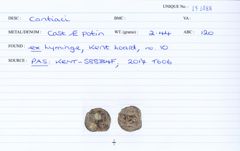 UNIQUE No:
DESC: Cantiaci BMC: VA:
METAL/DENOM: Cast Æ Potin WT.(grams): 2.44 ABC: 120
FOUND: ex Lyminge, Kent hoard, no. 10
SOURCE: PAS: KENT- 2014 T606